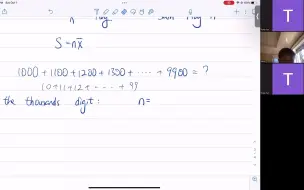 S = nx̄
1000 + 1100 + 1200 + 1300 + ····· + 9900 = ?
10 + 11 + 12 + - - - - + 99
the thousands digit : n =
T
T